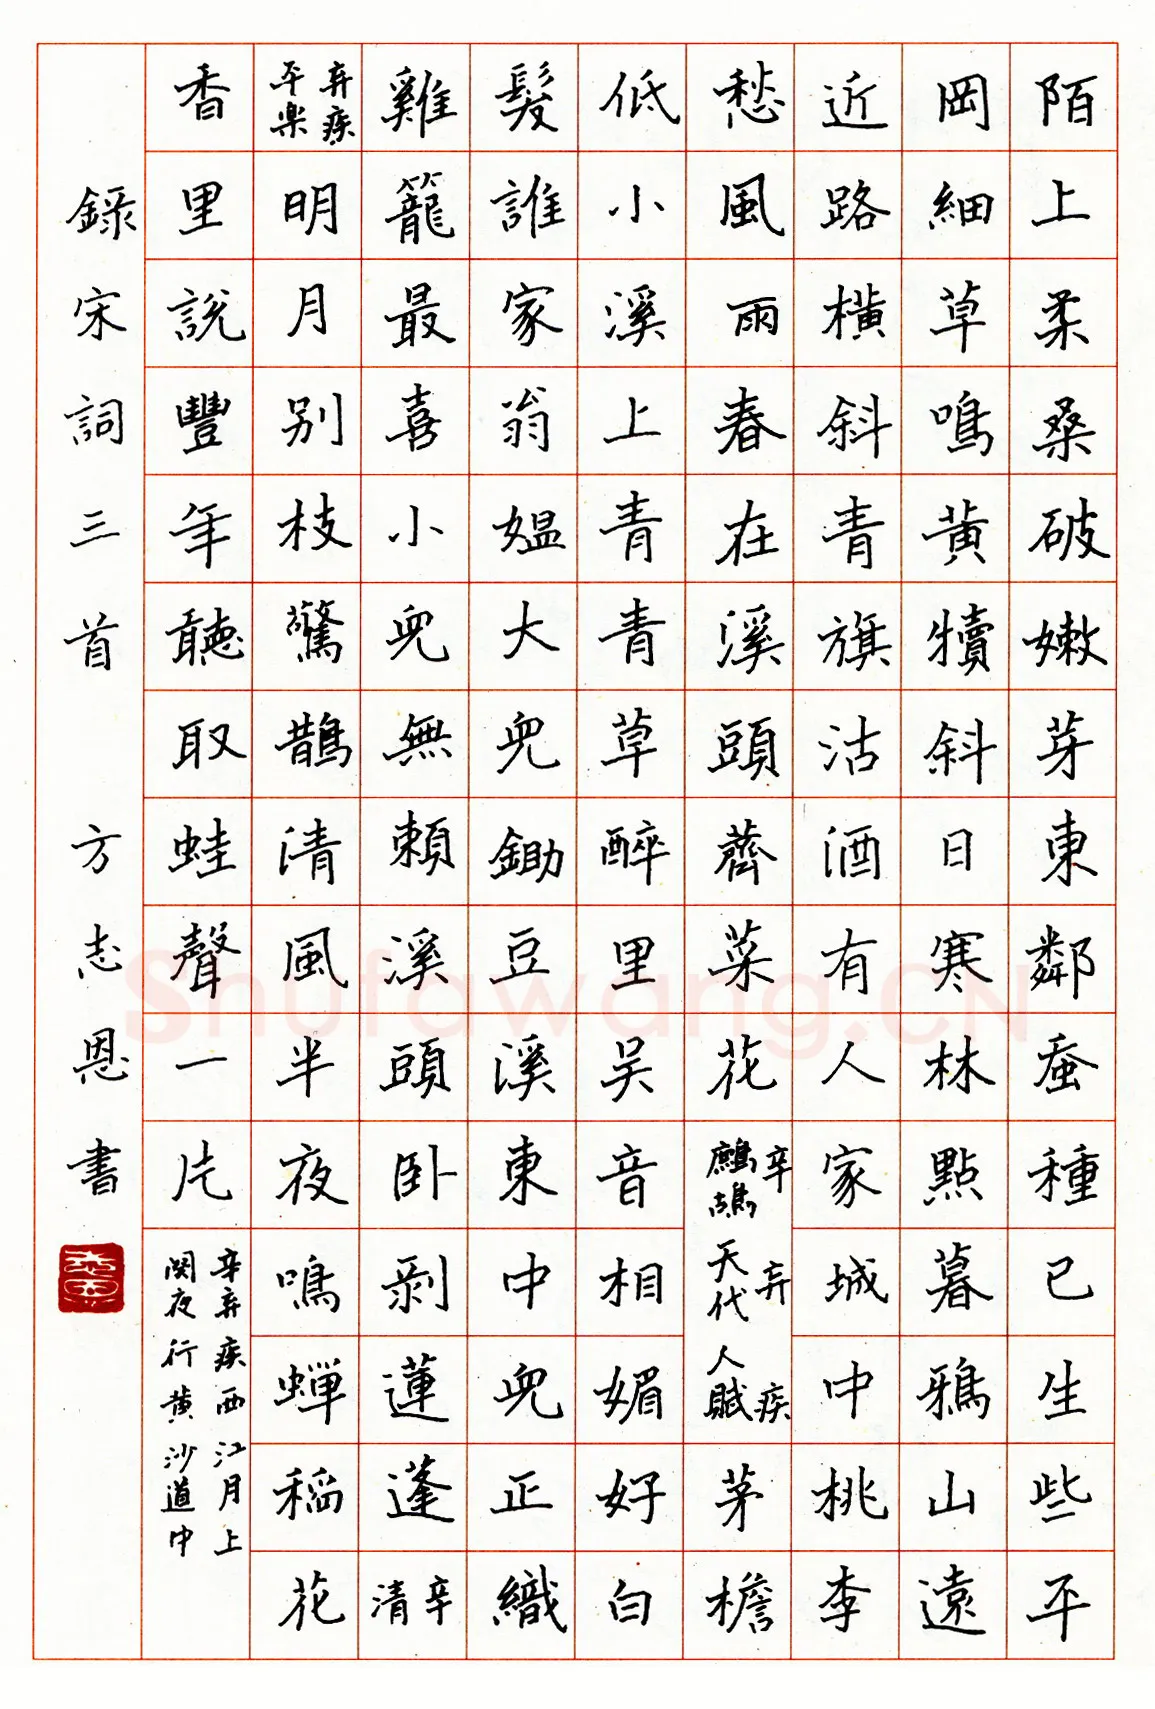 陌上柔桑破嫩芽東鄰蚕種已生些平
岡細草鳴黃犢斜日寒林點暮鴉山遠
近路橫斜青旗沽酒有人家城中桃李
愁風雨春在溪頭薺菜花
辛弃疾
鷓鴣天代人賦
茅檐
低小溪上青青草醉里吴音相媚好白
髮誰家翁媪大兒鋤豆溪東中兒正織
雞籠最喜小兒無賴溪頭卧剥蓮蓬
辛
清
弃疾
平楽
明月别枝驚鵲清風半夜鳴蝉稻花
香里說豐年聽取蛙聲一片
辛弃疾西江月上
闋夜行黄沙道中
録宋詞三首 方志恩書
Shufawang.CN